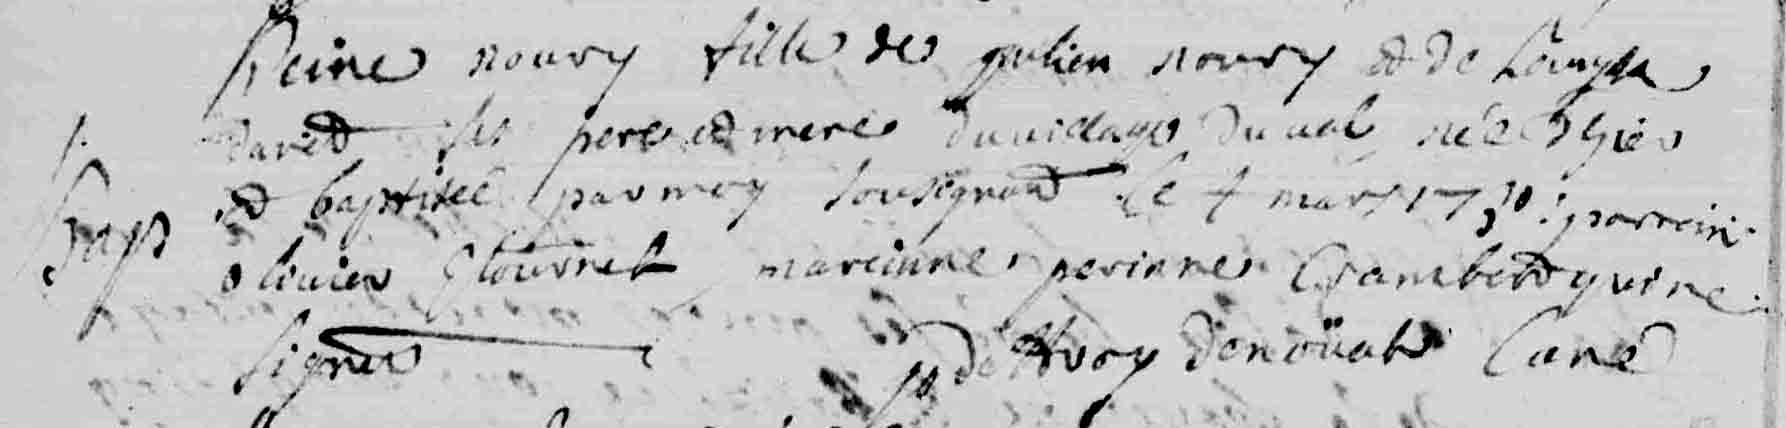 Reine noury fille de jullien noury et de Louyse
david ses pere et mere du village du val née d hier
B.
Bap
et baptisée par moy sousignant le 4 mars 1730 : parrein
olivier marainne perinne Chambet qui ne
signet
de denoüal Curé